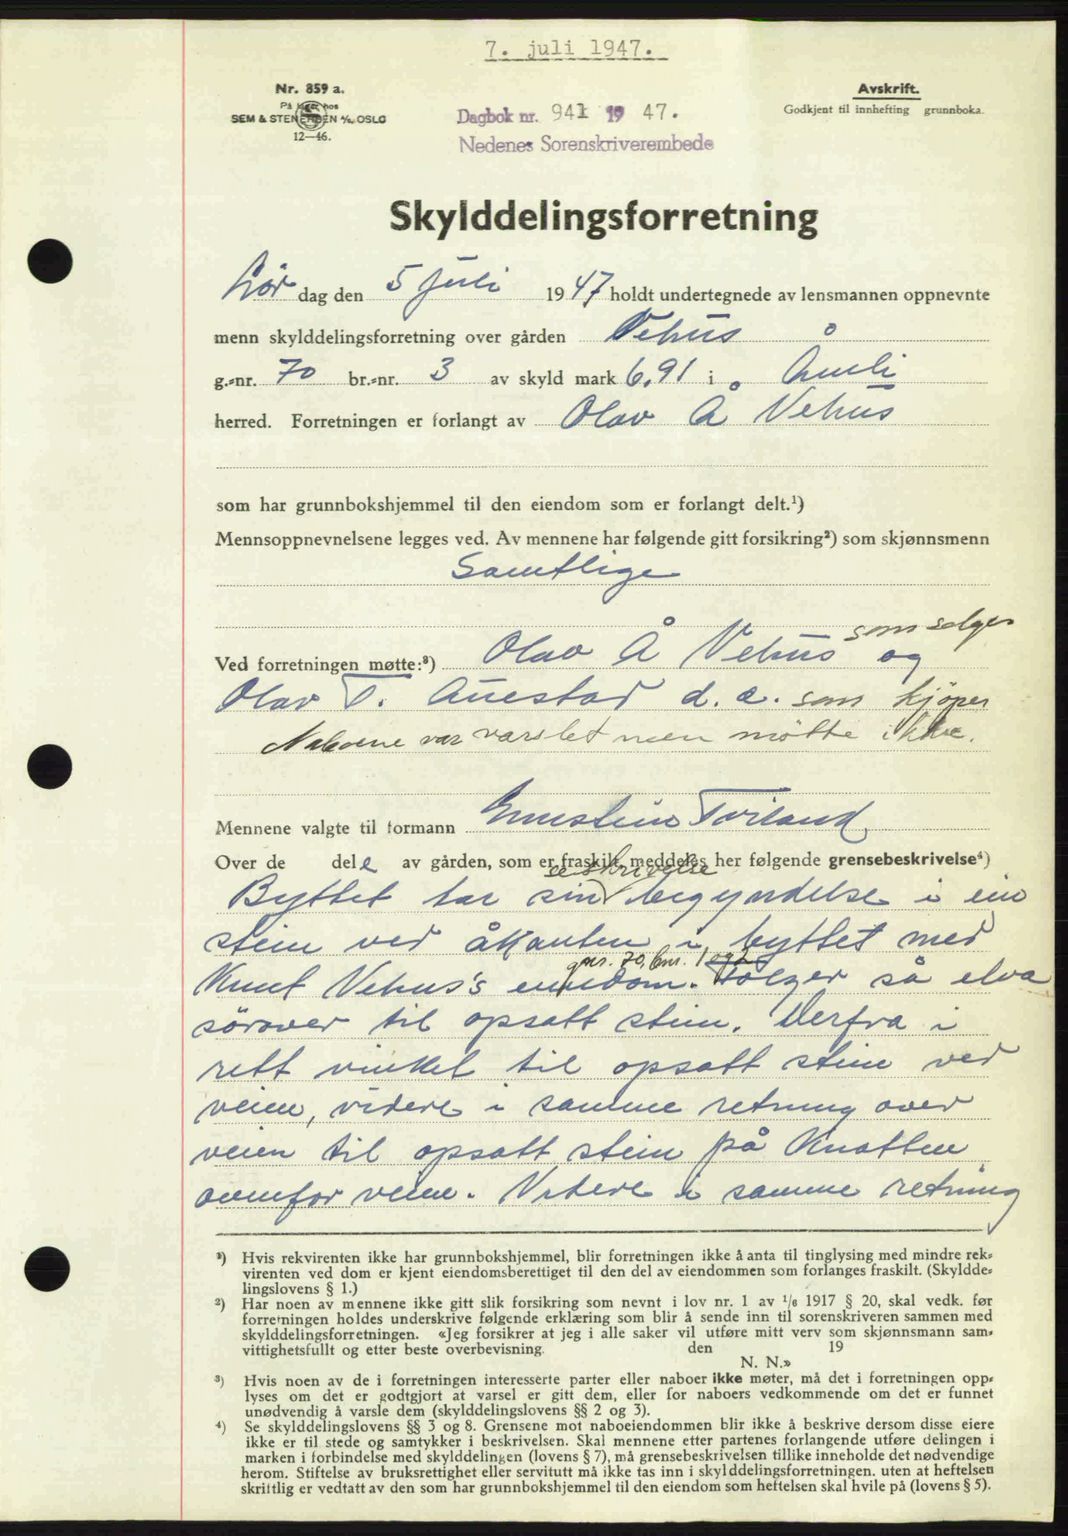 7. juli 1947.
Nr. 859 a.
På lager hos
SEM & STENERSEN A/S, OSLO
12—46.
Dagbok nr. 941 19 47.
Nedenes Sorenskriverembede
Avskrift.
Godkjent til innhefting grunnboka.
Skylddelingsforretning
Lør dag den 5 juli 1947 holdt undertegnede av lensmannen oppnevnte
menn skylddelingsforretning over gården Vehus
g.-nr. 70 br.-nr. 3 av skyld mark 6,91 i Åmli
herred. Forretningen er forlangt av Olav Å Vehus
som har grunnbokshjemmel til den eiendom som er forlangt delt.¹)
Mennsoppnevnelsene legges ved. Av mennene har følgende gitt forsikring²) som skjønnsmenn
Samtlige
Ved forretningen møtte:³) Olav Å Vehus som selger og
Olav T. Auestad d. e. som kjöper
Naboene var varslet men mötte ikke.
Mennene valgte til formann Tveiten
Over de dele av gården, som er fraskilt, meddeles her følgende grensebeskrivelse⁴)
Byttet tar sin begyndelse i ein
stein ved åkanten i byttet med
Knut Vehus's eiendom. gnr. 70, bnr. 1 og 2 Fölger så elva
sörover til opsatt stein. Derfra i
rett vinkel til opsatt stein ved
veien, videre i samme retning over
veien til opsatt stein på Knatten
ovenfor veien. Videre i samme retning
¹) Hvis rekvirenten ikke har grunnbokshjemmel, blir forretningen ikke å anta til tinglysing med mindre rek-
virenten ved dom er kjent eiendomsberettiget til den del av eiendommen som forlanges fraskilt. (Skyldde-
lingslovens § 1.)
²) Har noen av mennene ikke gitt slik forsikring som nevnt i lov nr. 1 av 1/6 1917 § 20, skal vedk. før
forretningen holdes underskrive følgende erklæring som blir å sende inn til sorenskriveren sammen med
skylddelingsforretningen. «Jeg forsikrer at jeg i alle saker vil utføre mitt verv som skjønnsmann sam-
vittighetsfullt og etter beste overbevisning. den 19
N. N.»
³) Hvis noen av de i forretningen interesserte parter eller naboer ikke møter, må det i forretningen opp-
lyses om det er godtgjort at varsel er gitt dem, eller for naboers vedkommende om det er funnet
unødvendig å varsle dem (skylddelingslovens §§ 2 og 3).
⁴) Se skylddelingslovens §§ 3 og 8. Grensene mot naboeiendommen blir ikke å beskrive dersom disse eiere
ikke er til stede og samtykker i beskrivelsen. Skal mennene etter partenes forlangende utføre delingen i
marken i forbindelse med skylddelingen (lovens § 7), må grensebeskrivelsen tillike inneholde det nødvendige
herom. Stiftelse av bruksrettighet eller servitutt må ikke tas inn i skylddelingsforretningen. uten at heftelsen
skriftlig er vedtatt av den som har grunnbokshjemmel til den eiendom som heftelsen skal hvile på (lovens § 5).